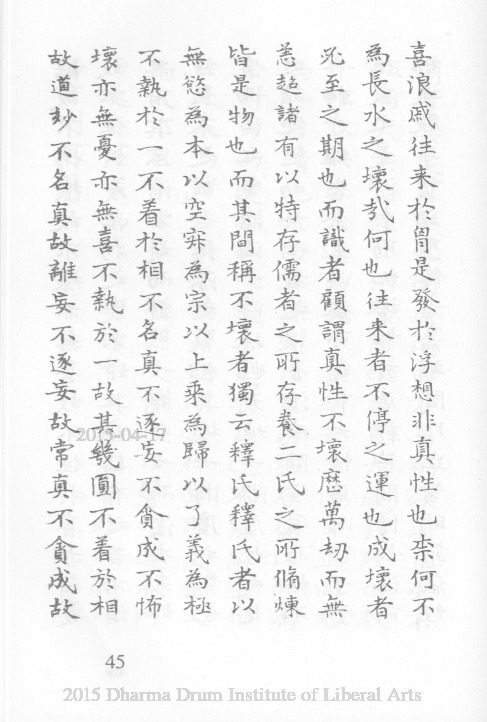 喜浪戚往来於胷是發於浮想非真性也柰何不
為長水之壞㢤何也往来者不停之運也成壞者
必至之期也而識者顧謂真性不壞歷萬劫而無
恙超諸有以特存儒者之所存養二氏之所脩煉
皆是物也而其間稱不壞者獨云釋氏釋氏者以
無慾為本以空寂為宗以上乘為歸以了義為極
不執於一不着於相不名真不逐妄不貪成不怖
壞亦無憂亦無喜不執於一故其幾圓不着於相
故道玅不名真故離妄不逐妄故常真不貪成故
2015-04-17
45
2015 Dharma Drum Institute of Liberal Arts